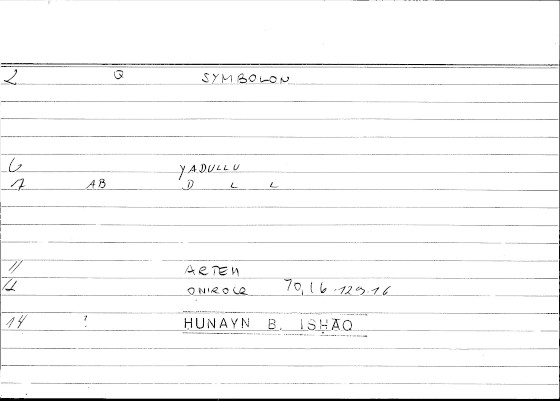 2 Q SYMBOLON
6 YADULLU
7 AB D L L
11 ARTEM
12 ONIROCR 70,16-129.16
14 ! HUNAYN B. ISHAQ